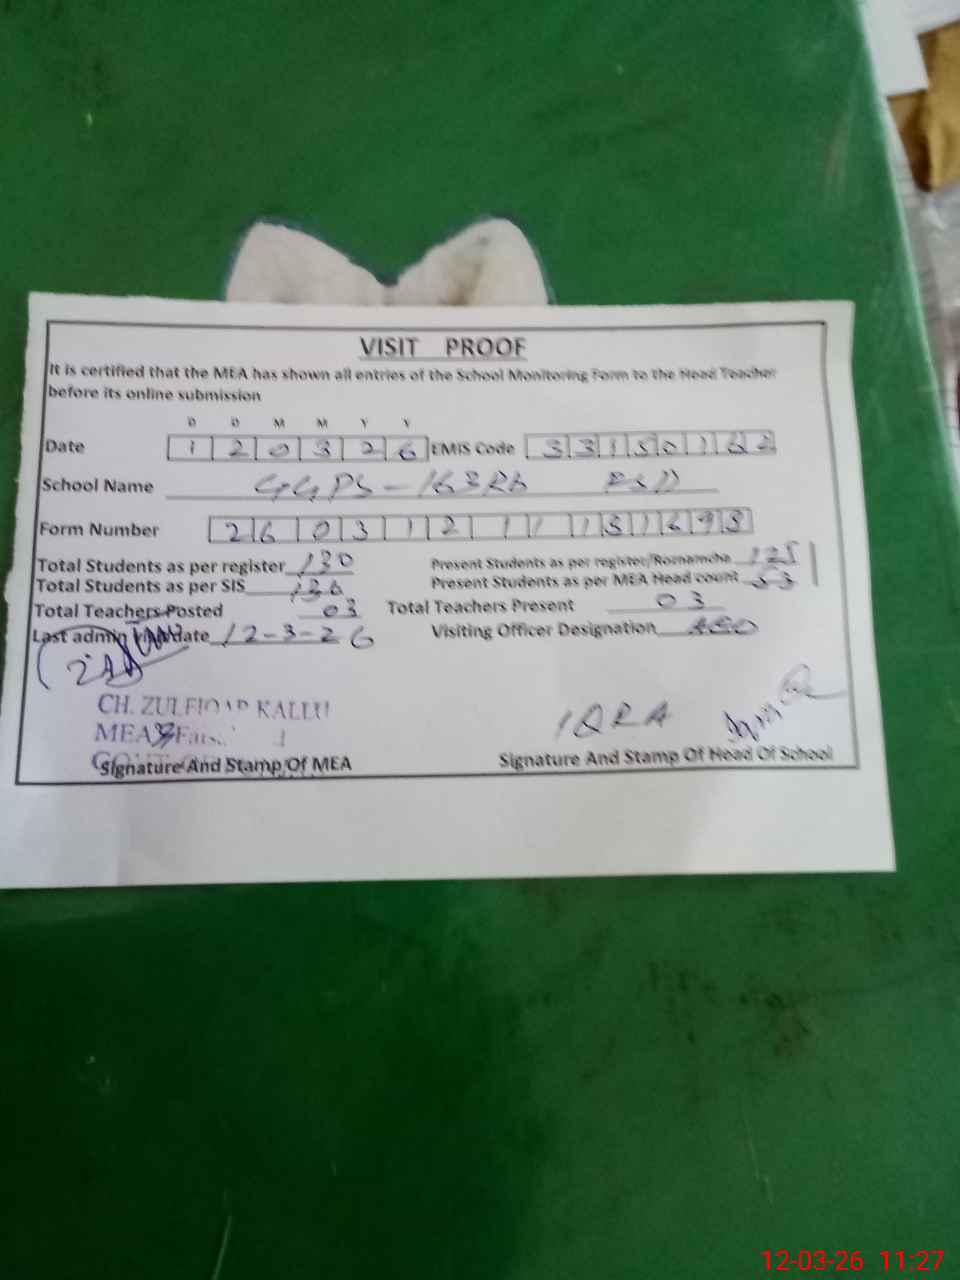 VISIT PROOF
It is certified that the MEA has shown all entries of the School Monitoring Form to the Head Teacher
before its online submission
D D M M Y Y
Date 1 2 0 3 2 6 EMIS Code 3 3 1 5 0 1 6 2
School Name GGPS - 163RB FSD
Form Number 2 6 0 3 1 2 1 1 1 5 1 6 9 8
Total Students as per register 130 Present Students as per register/Roznamcha 125
Total Students as per SIS 136 Present Students as per MEA Head count 53
Total Teachers Posted 03 Total Teachers Present 03
Last admin visit date 12-3-26 Visiting Officer Designation AEO
CH. ZULFIQAR KALLU
MEA 37
IQRA
Signature And Stamp Of MEA Signature And Stamp Of Head Of School
12-03-26 11:27